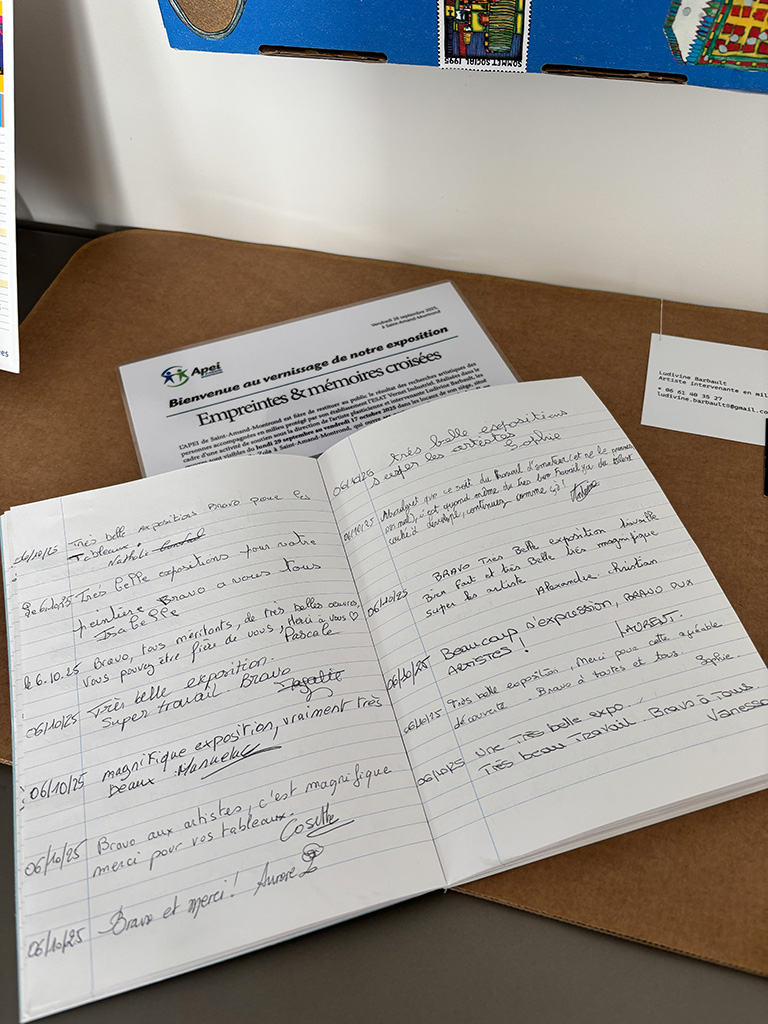 SOMMET SOCIAL 1995
Apei
Vendredi 26 septembre 2025,
à Saint-Amand-Montrond
Bienvenue au vernissage de notre exposition
Empreintes & mémoires croisées
L'APEI de Saint-Amand-Montrond est fière de restituer au public le résultat des recherches artistiques des
personnes accompagnées en milieu protégé par son établissement l'ESAT Vernet Industriel. Réalisées dans le
cadre d'une activité de soutien sous la direction de l'artiste plasticienne et intervenante Ludivine Barbault, les
œuvres sont visibles du lundi 29 septembre au vendredi 17 octobre 2025 dans les locaux de son siège, situé
Zola à Saint-Amand-Montrond, qui ouvre
Ludivine Barbault
Artiste intervenante en mil
+ 06 61 40 35 27
ludivine.barbault@gmail.co
06/10/25 Très belle expositions Bravo pour les
Tableaux.
Nathalie
Le 6.10.25 Très belle expositions pour votre
peinture Bravo a vous tous
Isabelle
le 6.10.25 Bravo, tous méritants, de très belles oeuvres,
Vous pouvez être fière de vous, Merci à vous ♡
Pascale
06/10/25 Très belle exposition.
Super travail. Bravo
06/10/25 magnifique exposition, vraiment très
beaux.
06/10/25 Bravo aux artistes, c'est magnifique
merci pour vos tableaux.
Cosette
06/10/25 Bravo et merci! Aurore
06/10/25 très belle expositions
super les artistes
Sophie
06/10/25 que ce soit du travail d'amateur (et ne le prenez
pas mal), c'est quand même du très bon Travail y'a du talent
caché et développé, continuez comme ça!
06/10/25 BRAVO Très Belle exposition travaille
Bien Fait et très Belle très magnifique
super les artiste Alexandre christian
06/10/25 Beaucoup d'expression, BRAVO aux
ARTISTES!
LAURENT.
06/10/25 Très belle exposition, Merci pour cette agréable
découverte. Bravo à toutes et tous. Sophie
06/10/25 Une Très belle expo...
Très beau Travail. Bravo à Tous
Vanessa